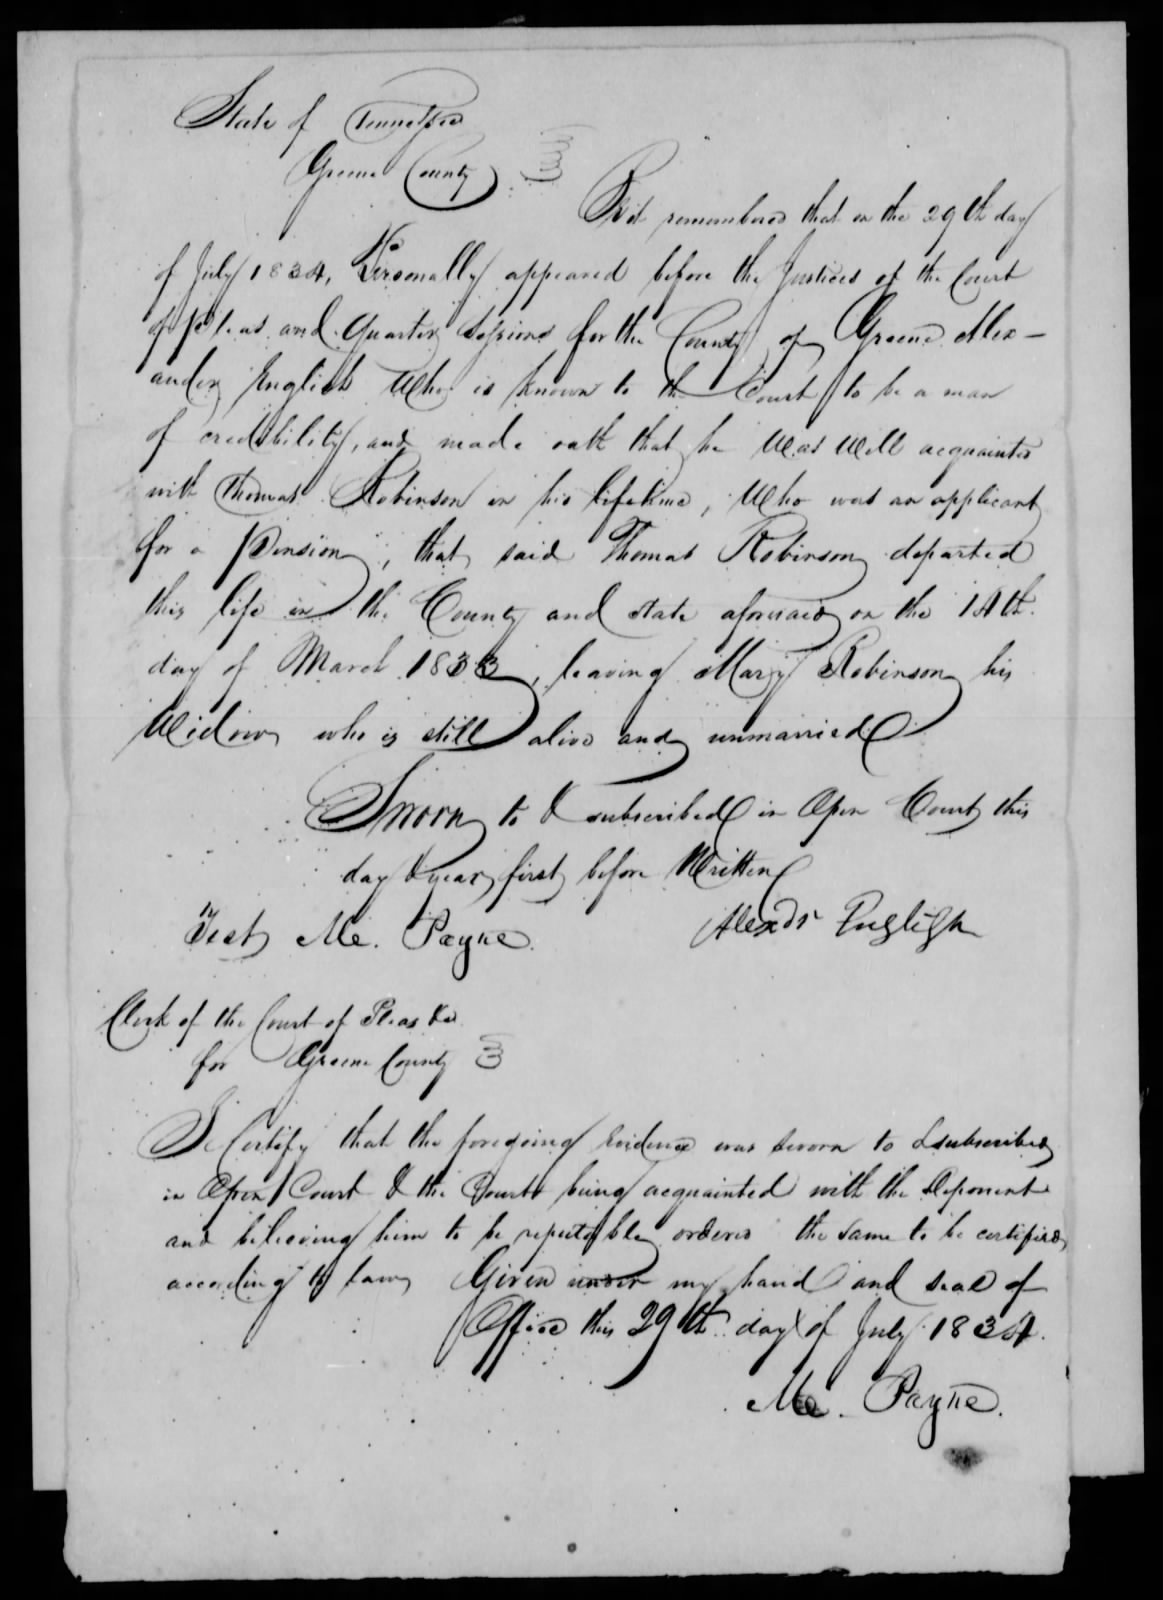 State of Tennessee
Greene County
Be it remembered that on the 29th day
of July 1834, Personally appeared before the Justices of the Court
of pleas and Quarter Sessions for the County of Greene Alex-
ander English Who is known to the Court to be a man
of credibility, and made oath that he Was Well acquainted
with Thomas Robinson in his lifetime, Who was an applicant
for a Pension, that said Thomas Robinson departed
this life in the County and state aforesaid on the 14th
day of March 1833, leaving Mary Robinson his
Widow who is still alive and unmarried
Sworn to & subscribed in Open Court this
day & year first before Written
Alexdr English
Test Me. Payne.
Clerk of the Court of Pleas &c
for Greene County
I Certify that the foregoing Evidence was sworn to & subscribed
in Open Court & the Court being acquainted with the Deponent
and believing him to be reputable ordered the same to be certified
according to law, Given under my hand and seal of
Office this 29th day of July 1834.
Me. Payne.